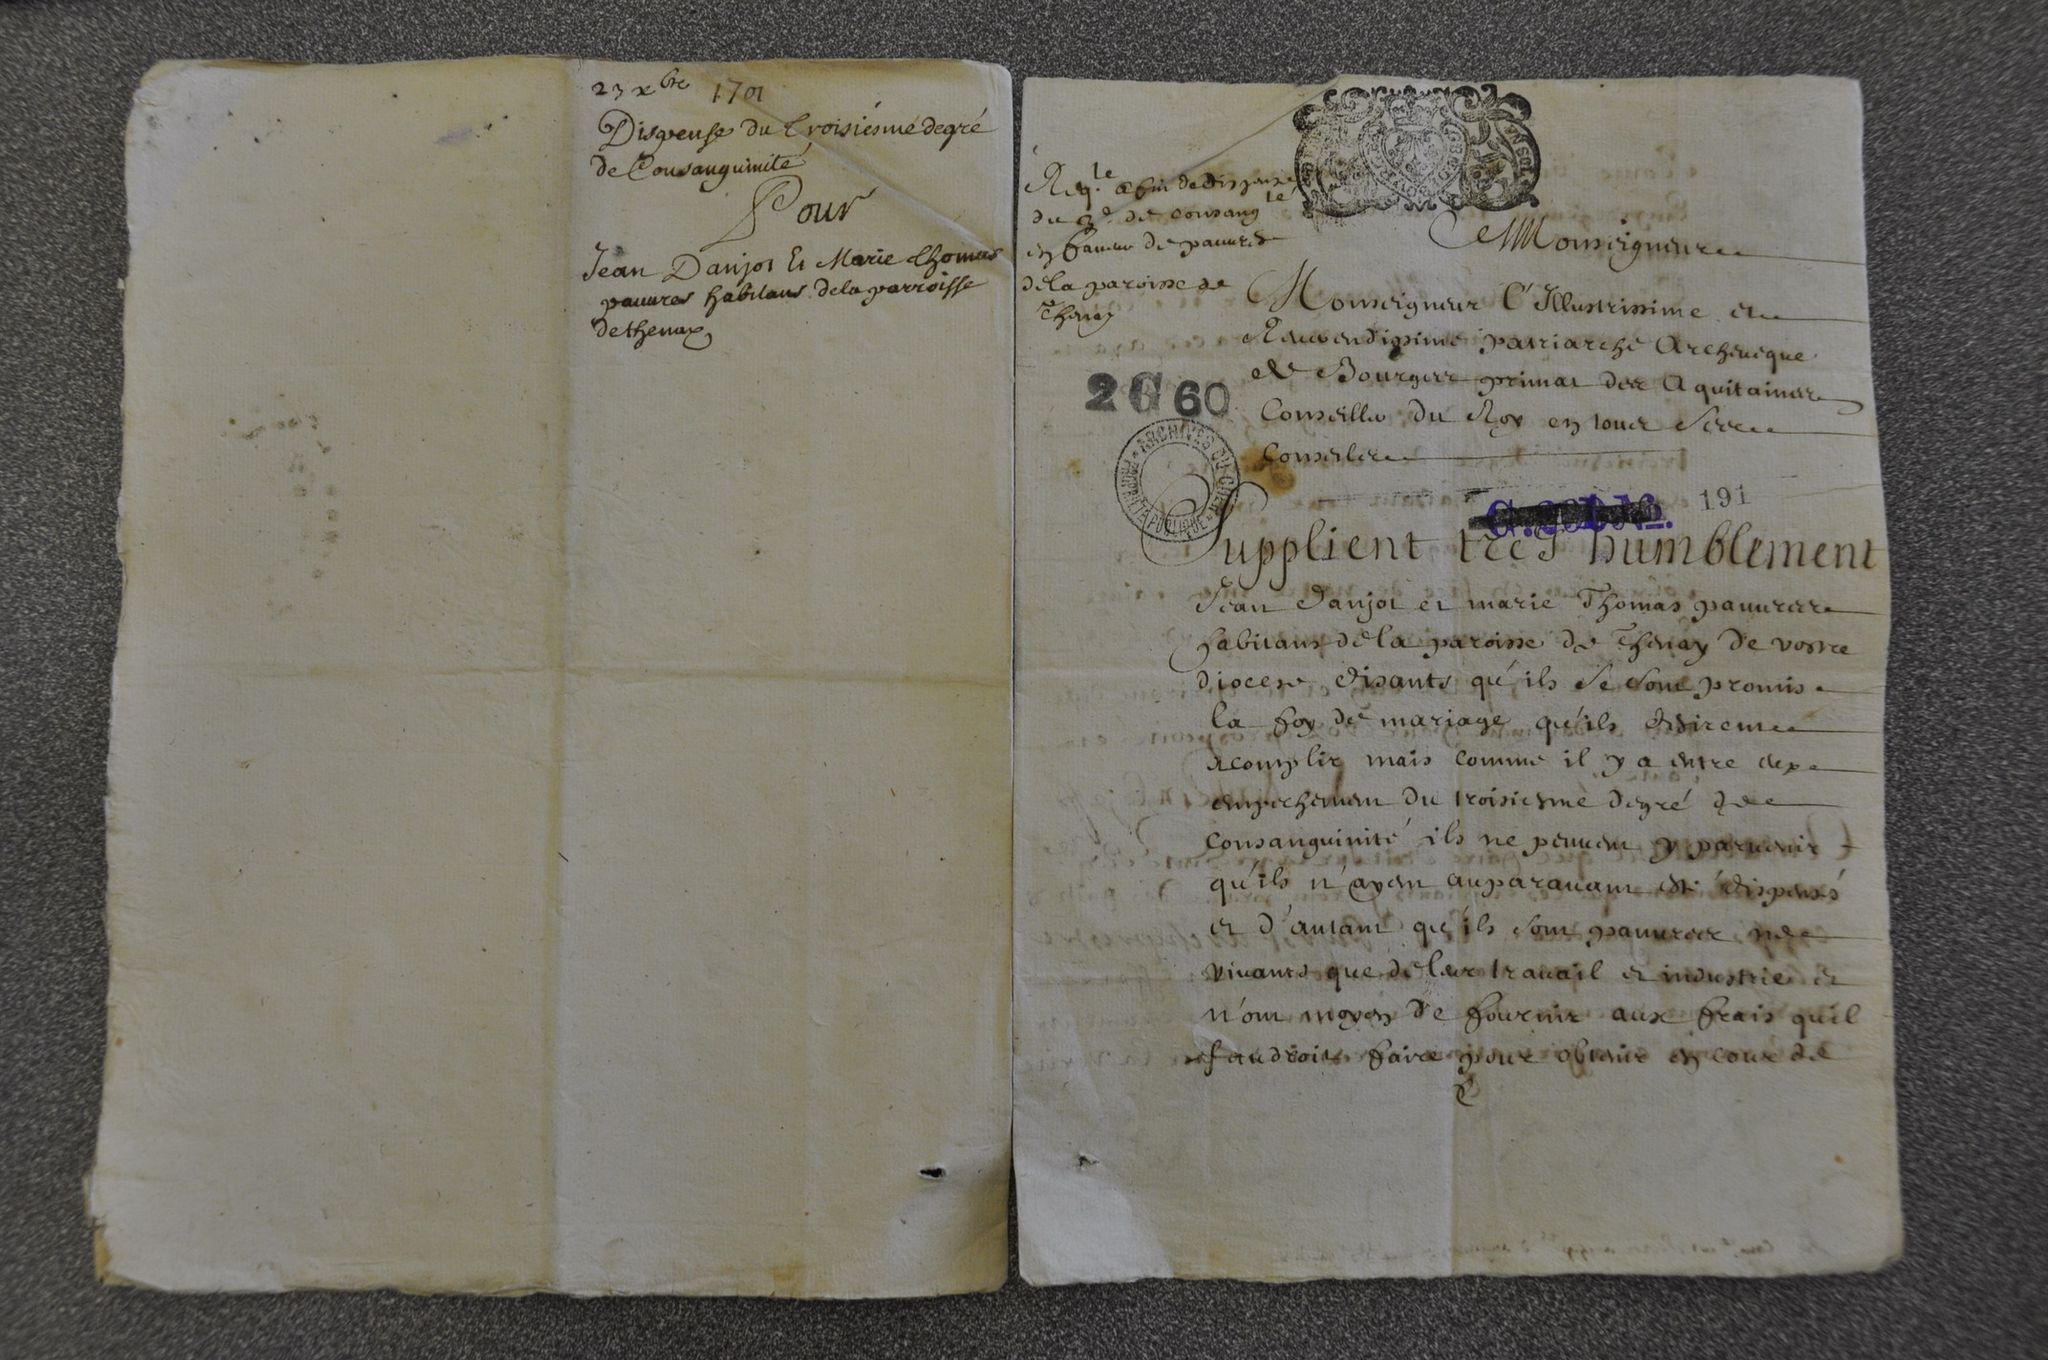 23 xbre 1701
Dispense du troisiésme degré
de Consanguinité
Pour
Jean Danjot Et Marie thomas
pauures habitans de la parroisse
de thenay
Reqte afin de dispense
du 3e de consangte
en faueur de pauures
de la paroisse de
Thenay
2 G 60
ARCHIVES DU CHER
PROPRIÉTÉ PUBLIQUE
A Monseigneur
Monseigneur l'Illustrissime et
Reuerendissime patriarche Archeueque
de Bourges primat des Aquitaines
Conseiller du Roy en tous Ses
Conseils
191
Supplient tres humblement
Jean Danjot et marie Thomas pauures
habitans de la paroisse de Thenay de vostre
diocese disants qu'ils se sont promis
la foy de mariage qu'ils desirent
acomplir mais comme il y a entre eux
empechement du troisiesme degré de
Consanguinité ils ne peuuent y paruenir
qu'ils n'ayent auparauant esté dispensés
et d'autant qu'ils sont pauures ne
viuants que de leur trauail et industrie et
n'ont moyen de fournir aux frais qu'il
faudroit faire pour obtenir en cour de